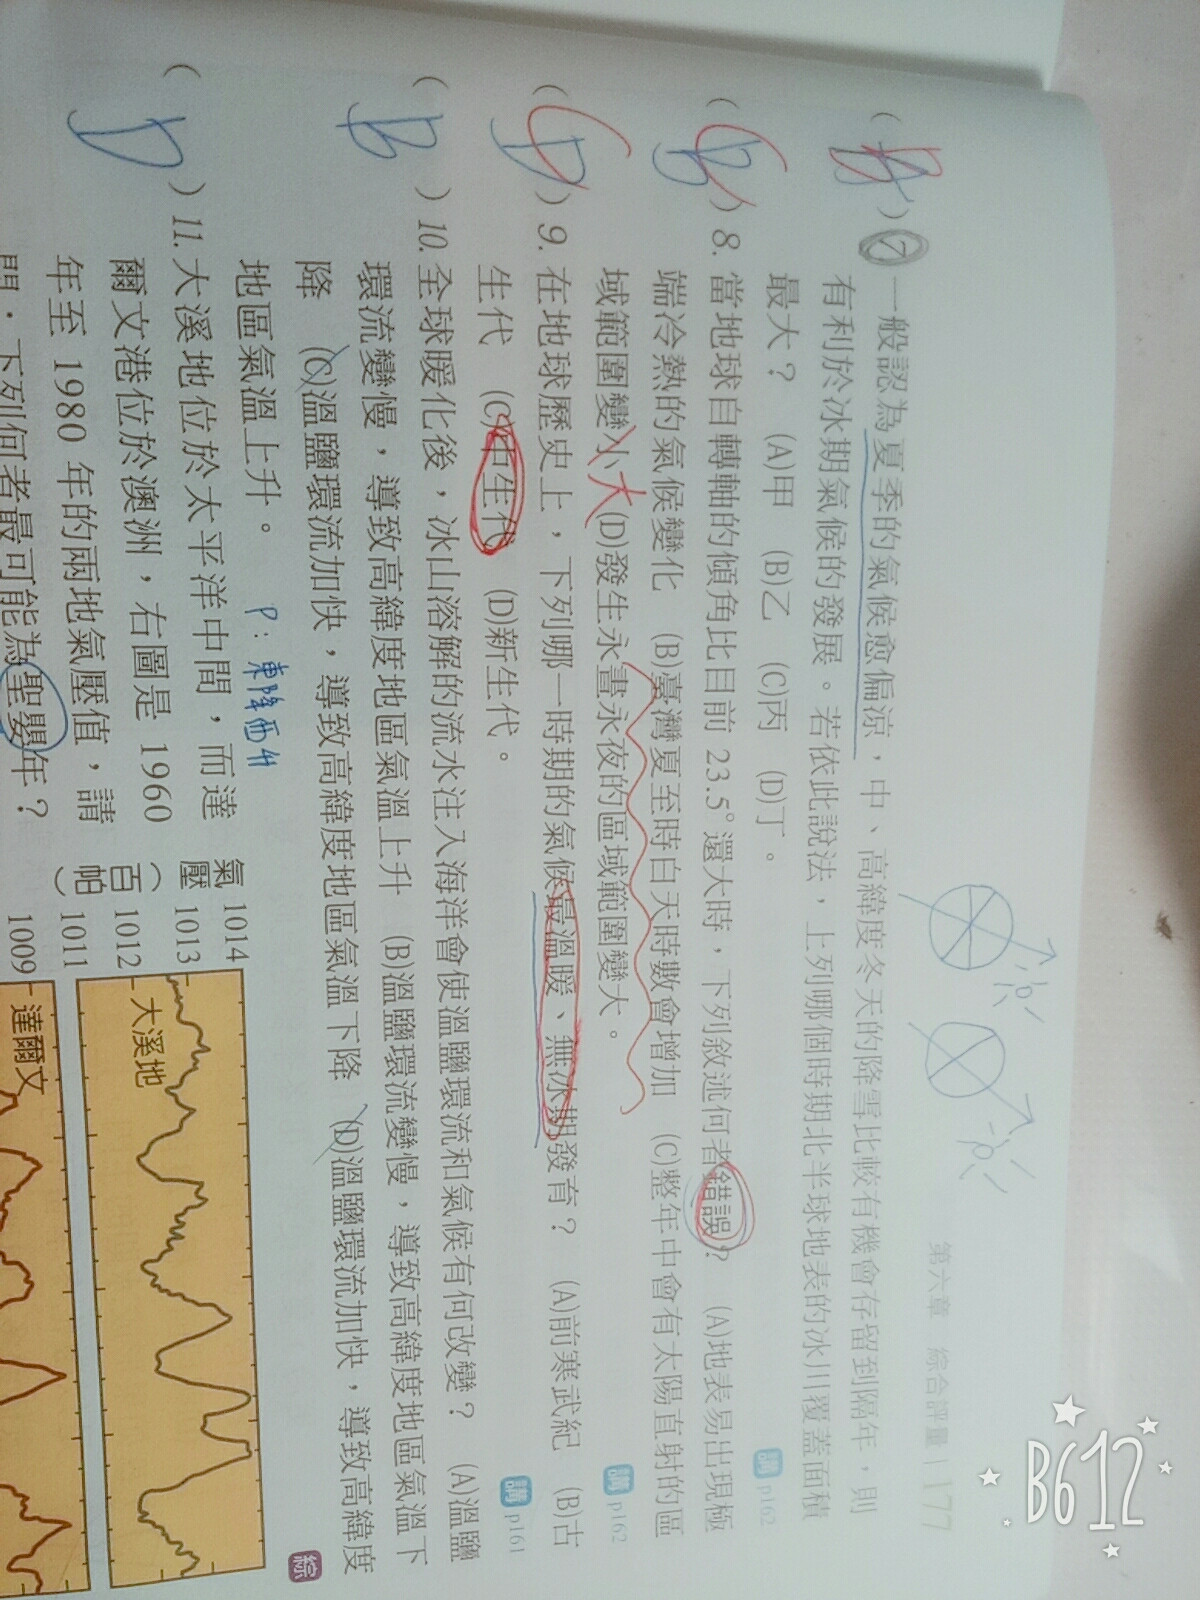 第六章 綜合評量 | 177
(B) 7. 一般認為夏季的氣候愈偏涼，中、高緯度冬天的降雪比較有機會存留到隔年，則
有利於冰期氣候的發展。若依此說法，上列哪個時期北半球地表的冰川覆蓋面積
最大？ (A)甲 (B)乙 (C)丙 (D)丁。 講 p162
(B) 8. 當地球自轉軸的傾角比目前 23.5° 還大時，下列敘述何者錯誤？ (A)地表易出現極
端冷熱的氣候變化 (B)臺灣夏至時白天時數會增加 (C)整年中會有太陽直射的區
域範圍變小 大 (D)發生永晝永夜的區域範圍變大。 講 p162
( ) 9. 在地球歷史上，下列哪一時期的氣候最溫暖、無冰期發育？ (A)前寒武紀 (B)古
生代 (C)中生代 (D)新生代。 講 p161
(B) 10. 全球暖化後，冰山溶解的流水注入海洋會使溫鹽環流和氣候有何改變？ (A)溫鹽
環流變慢，導致高緯度地區氣溫上升 (B)溫鹽環流變慢，導致高緯度地區氣溫下
降 (C)溫鹽環流加快，導致高緯度地區氣溫下降 (D)溫鹽環流加快，導致高緯度
地區氣溫上升。 P：東降西升 綜
(D) 11. 大溪地位於太平洋中間，而達
爾文港位於澳洲，右圖是 1960
年至 1980 年的兩地氣壓值，請
問：下列何者最可能為聖嬰年？
氣壓（百帕）
1014
1013
1012
1011
1009
大溪地
達爾文
B612